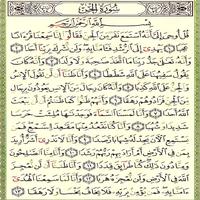 سُورَةُ الجِنّ
بِسْمِ اللَّهِ الرَّحْمَٰنِ الرَّحِيمِ
قُلْ أُوحِيَ إِلَيَّ أَنَّهُ اسْتَمَعَ نَفَرٌ مِّنَ الْجِنِّ فَقَالُوا إِنَّا سَمِعْنَا قُرْآنًا
عَجَبًا ١ يَهْدِي إِلَى الرُّشْدِ فَآمَنَّا بِهِ وَلَن نُّشْرِكَ بِرَبِّنَا أَحَدًا ٢
وَأَنَّهُ تَعَالَىٰ جَدُّ رَبِّنَا مَا اتَّخَذَ صَاحِبَةً وَلَا وَلَدًا ٣ وَأَنَّهُ كَانَ
يَقُولُ سَفِيهُنَا عَلَى اللَّهِ شَطَطًا ٤ وَأَنَّا ظَنَنَّا أَن لَّن تَقُولَ الْإِنسُ
وَالْجِنُّ عَلَى اللَّهِ كَذِبًا ٥ وَأَنَّهُ كَانَ رِجَالٌ مِّنَ الْإِنسِ يَعُوذُونَ بِرِجَالٍ
مِّنَ الْجِنِّ فَزَادُوهُمْ رَهَقًا ٦ وَأَنَّهُمْ ظَنُّوا كَمَا ظَنَنتُمْ أَن لَّن يَبْعَثَ
اللَّهُ أَحَدًا ٧ وَأَنَّا لَمَسْنَا السَّمَاءَ فَوَجَدْنَاهَا مُلِئَتْ حَرَسًا
شَدِيدًا وَشُهُبًا ٨ وَأَنَّا كُنَّا نَقْعُدُ مِنْهَا مَقَاعِدَ لِلسَّمْعِ فَمَن
يَسْتَمِعِ الْآنَ يَجِدْ لَهُ شِهَابًا رَّصَدًا ٩ وَأَنَّا لَا نَدْرِي أَشَرٌّ أُرِيدَ
بِمَن فِي الْأَرْضِ أَمْ أَرَادَ بِهِمْ رَبُّهُمْ رَشَدًا ١٠ وَأَنَّا مِنَّا الصَّالِحُونَ
وَمِنَّا دُونَ ذَٰلِكَ كُنَّا طَرَائِقَ قِدَدًا ١١ وَأَنَّا ظَنَنَّا أَن لَّن نُّعْجِزَ
اللَّهَ فِي الْأَرْضِ وَلَن نُّعْجِزَهُ هَرَبًا ١٢ وَأَنَّا لَمَّا سَمِعْنَا الْهُدَىٰ
آمَنَّا بِهِ فَمَن يُؤْمِن بِرَبِّهِ فَلَا يَخَافُ بَخْسًا وَلَا رَهَقًا ١٣